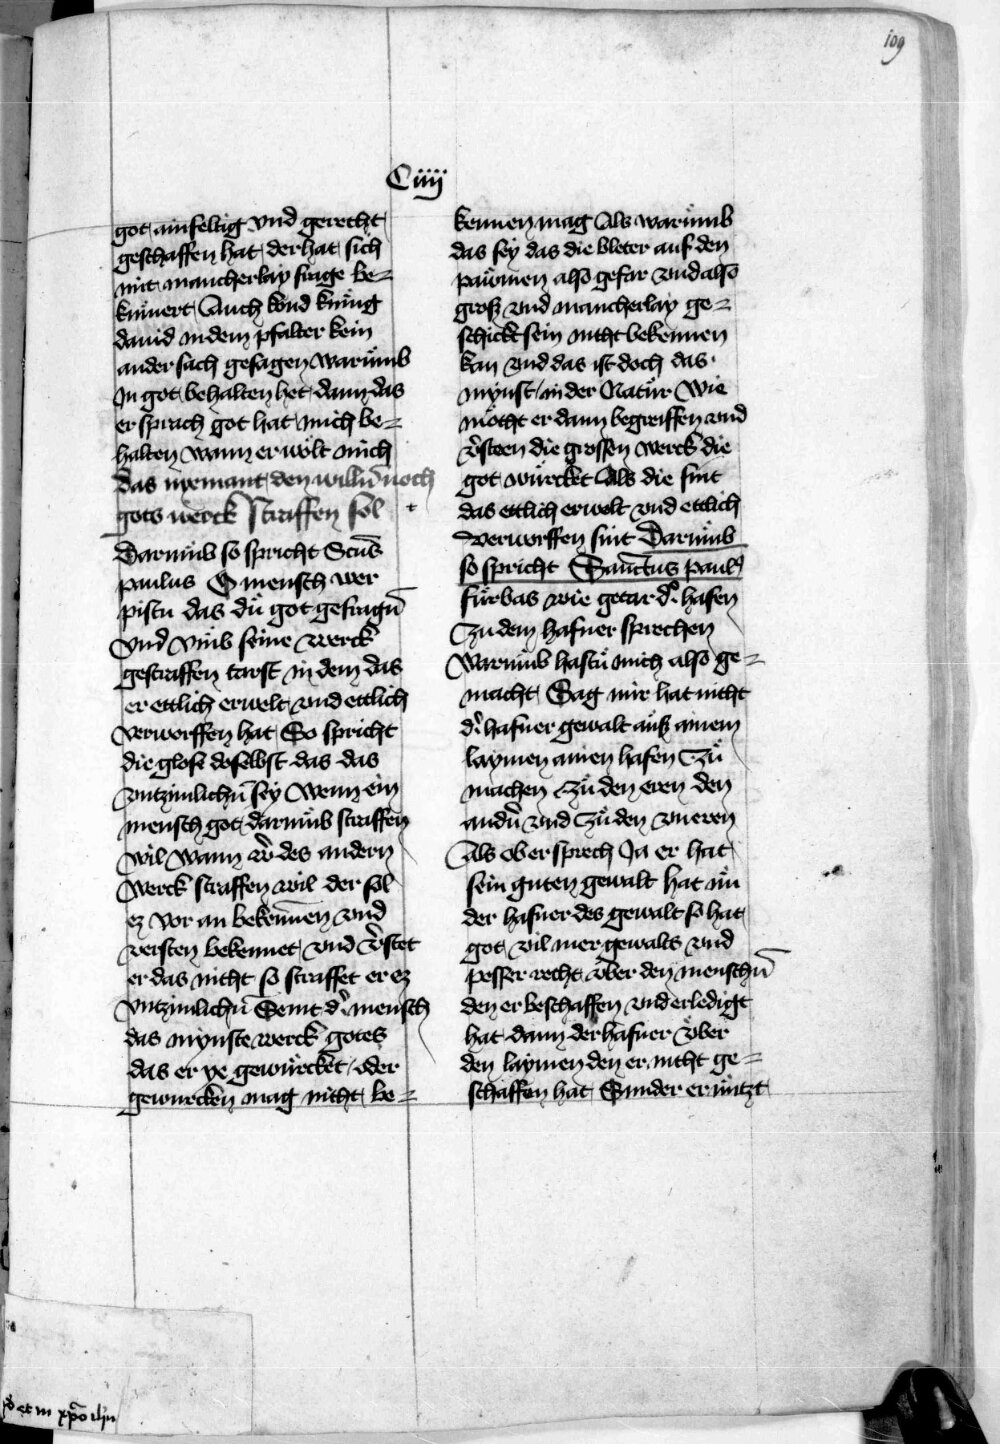 109
Ciiij
got ainfeltig vnd gerecht
geschaffen hat der hat sich
mit mancherlay frage be=
kümert Auch kond künig
dauid in dem psalter kein
ander sach gesagen warümb
In got behalten het dann das
er sprach got hat mich be=
halten wann er wolt mich
das nyemant den willn̄ noch
gots werck straffen sol
Darumb so spricht Scūs
paulus O mensch wer
pistu das dü got gefragn̄
vnd vmb seine werck
gestraffen tarst in dem das
er ettlich erwelt vnd ettlich
verworffen hat So spricht
die glose doselbst das das
vntzimlichn̄ sey Wenn ein
mensch got darumb straffen
wil wann wer des andern
werck straffen wil der sol
ez vor an bekennen vnd
versten bekennet vnd v̄stet
er das nicht so straffet er ez
vntzimlichn̄ Seint d̄ mensch
das mynste werck gotes
das er ye gewürcket oder
gewurcken mag nicht be=
kennen mag Als warümb
das sey das die bleter auf den
paümen also gefar vnd also
groß vnd mancherlay ge=
schickt sein nicht bekennen
kan vnd das ist doch das
mynst in der Natür Wie
möcht er dann begreiffen vnd
v̄steen die grossen werck die
got würcket Als die sint
das ettlich erwelt vnd ettlich
verworffen sint Darumb
so spricht Sanctus paulꝰ
fürbas wie getar d̄ hafen
zu dem hafner sprechen
Warumb hastu mich also ge=
macht Sag mir hat nicht
d̄ hafner gewalt auß ainem
laymen ainen hafen zü
machen zü den eren den
andn̄ vnd zü den vneren
Als ob er sprech Ja er hat
sein guten gewalt hat nü
der hafner des gewalt so hat
got vil mer gewalts vnd
pesser recht über den menschn̄
den er beschaffen vnd erledigt
hat dann der hafner über
den laymen den er nicht ge=
schaffen hat Sunder er nützt
et in xp̄o